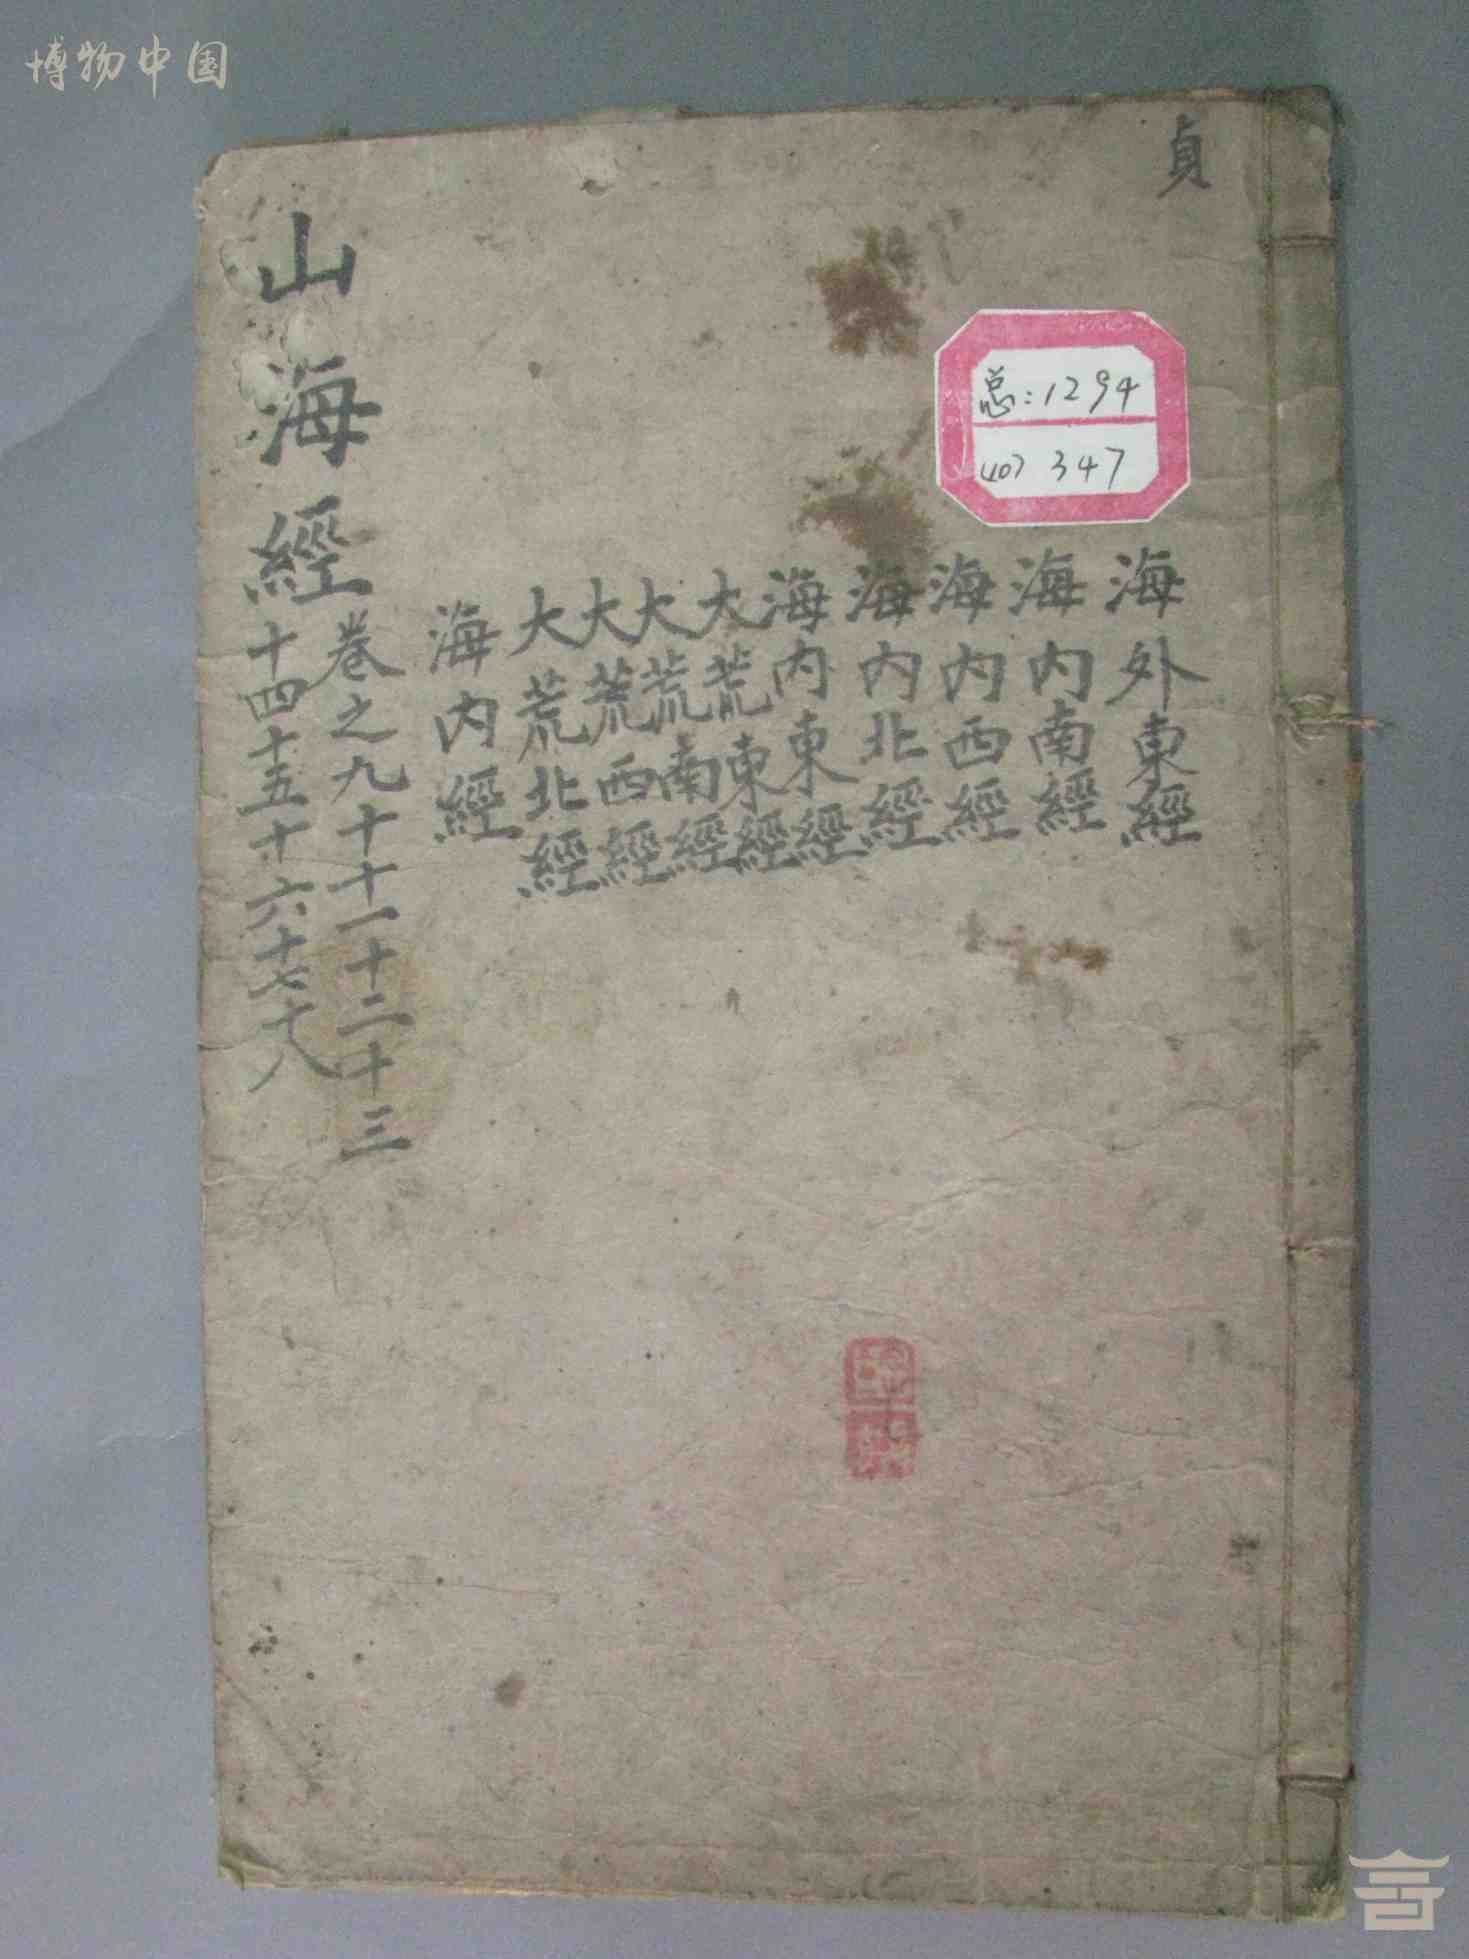 博物中国
貞
总：1294
(10) 347
海外東經
海内南經
海内西經
海内北經
海内東經
大荒東經
大荒南經
大荒西經
大荒北經
海内經
山海經
卷之九十十一十二十三
十四十五十六十七十八